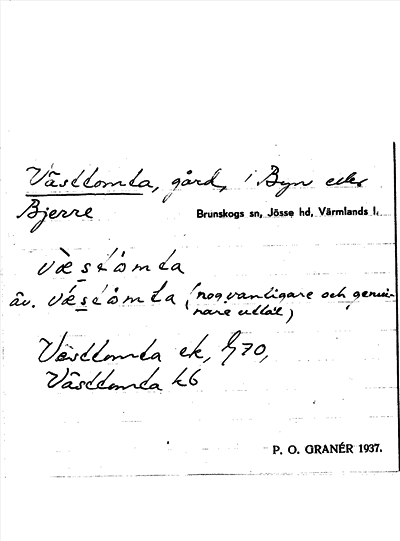 Västtomta, gård, i Byn eller
Bjerre
Brunskogs sn, Jösse hd, Värmlands l.
væ̀stômta
äv. vǽstômta (nog vanligare och genui-
nare uttal)
Västtomta ek,
Västtomta kb
P. O. GRANÉR 1937.